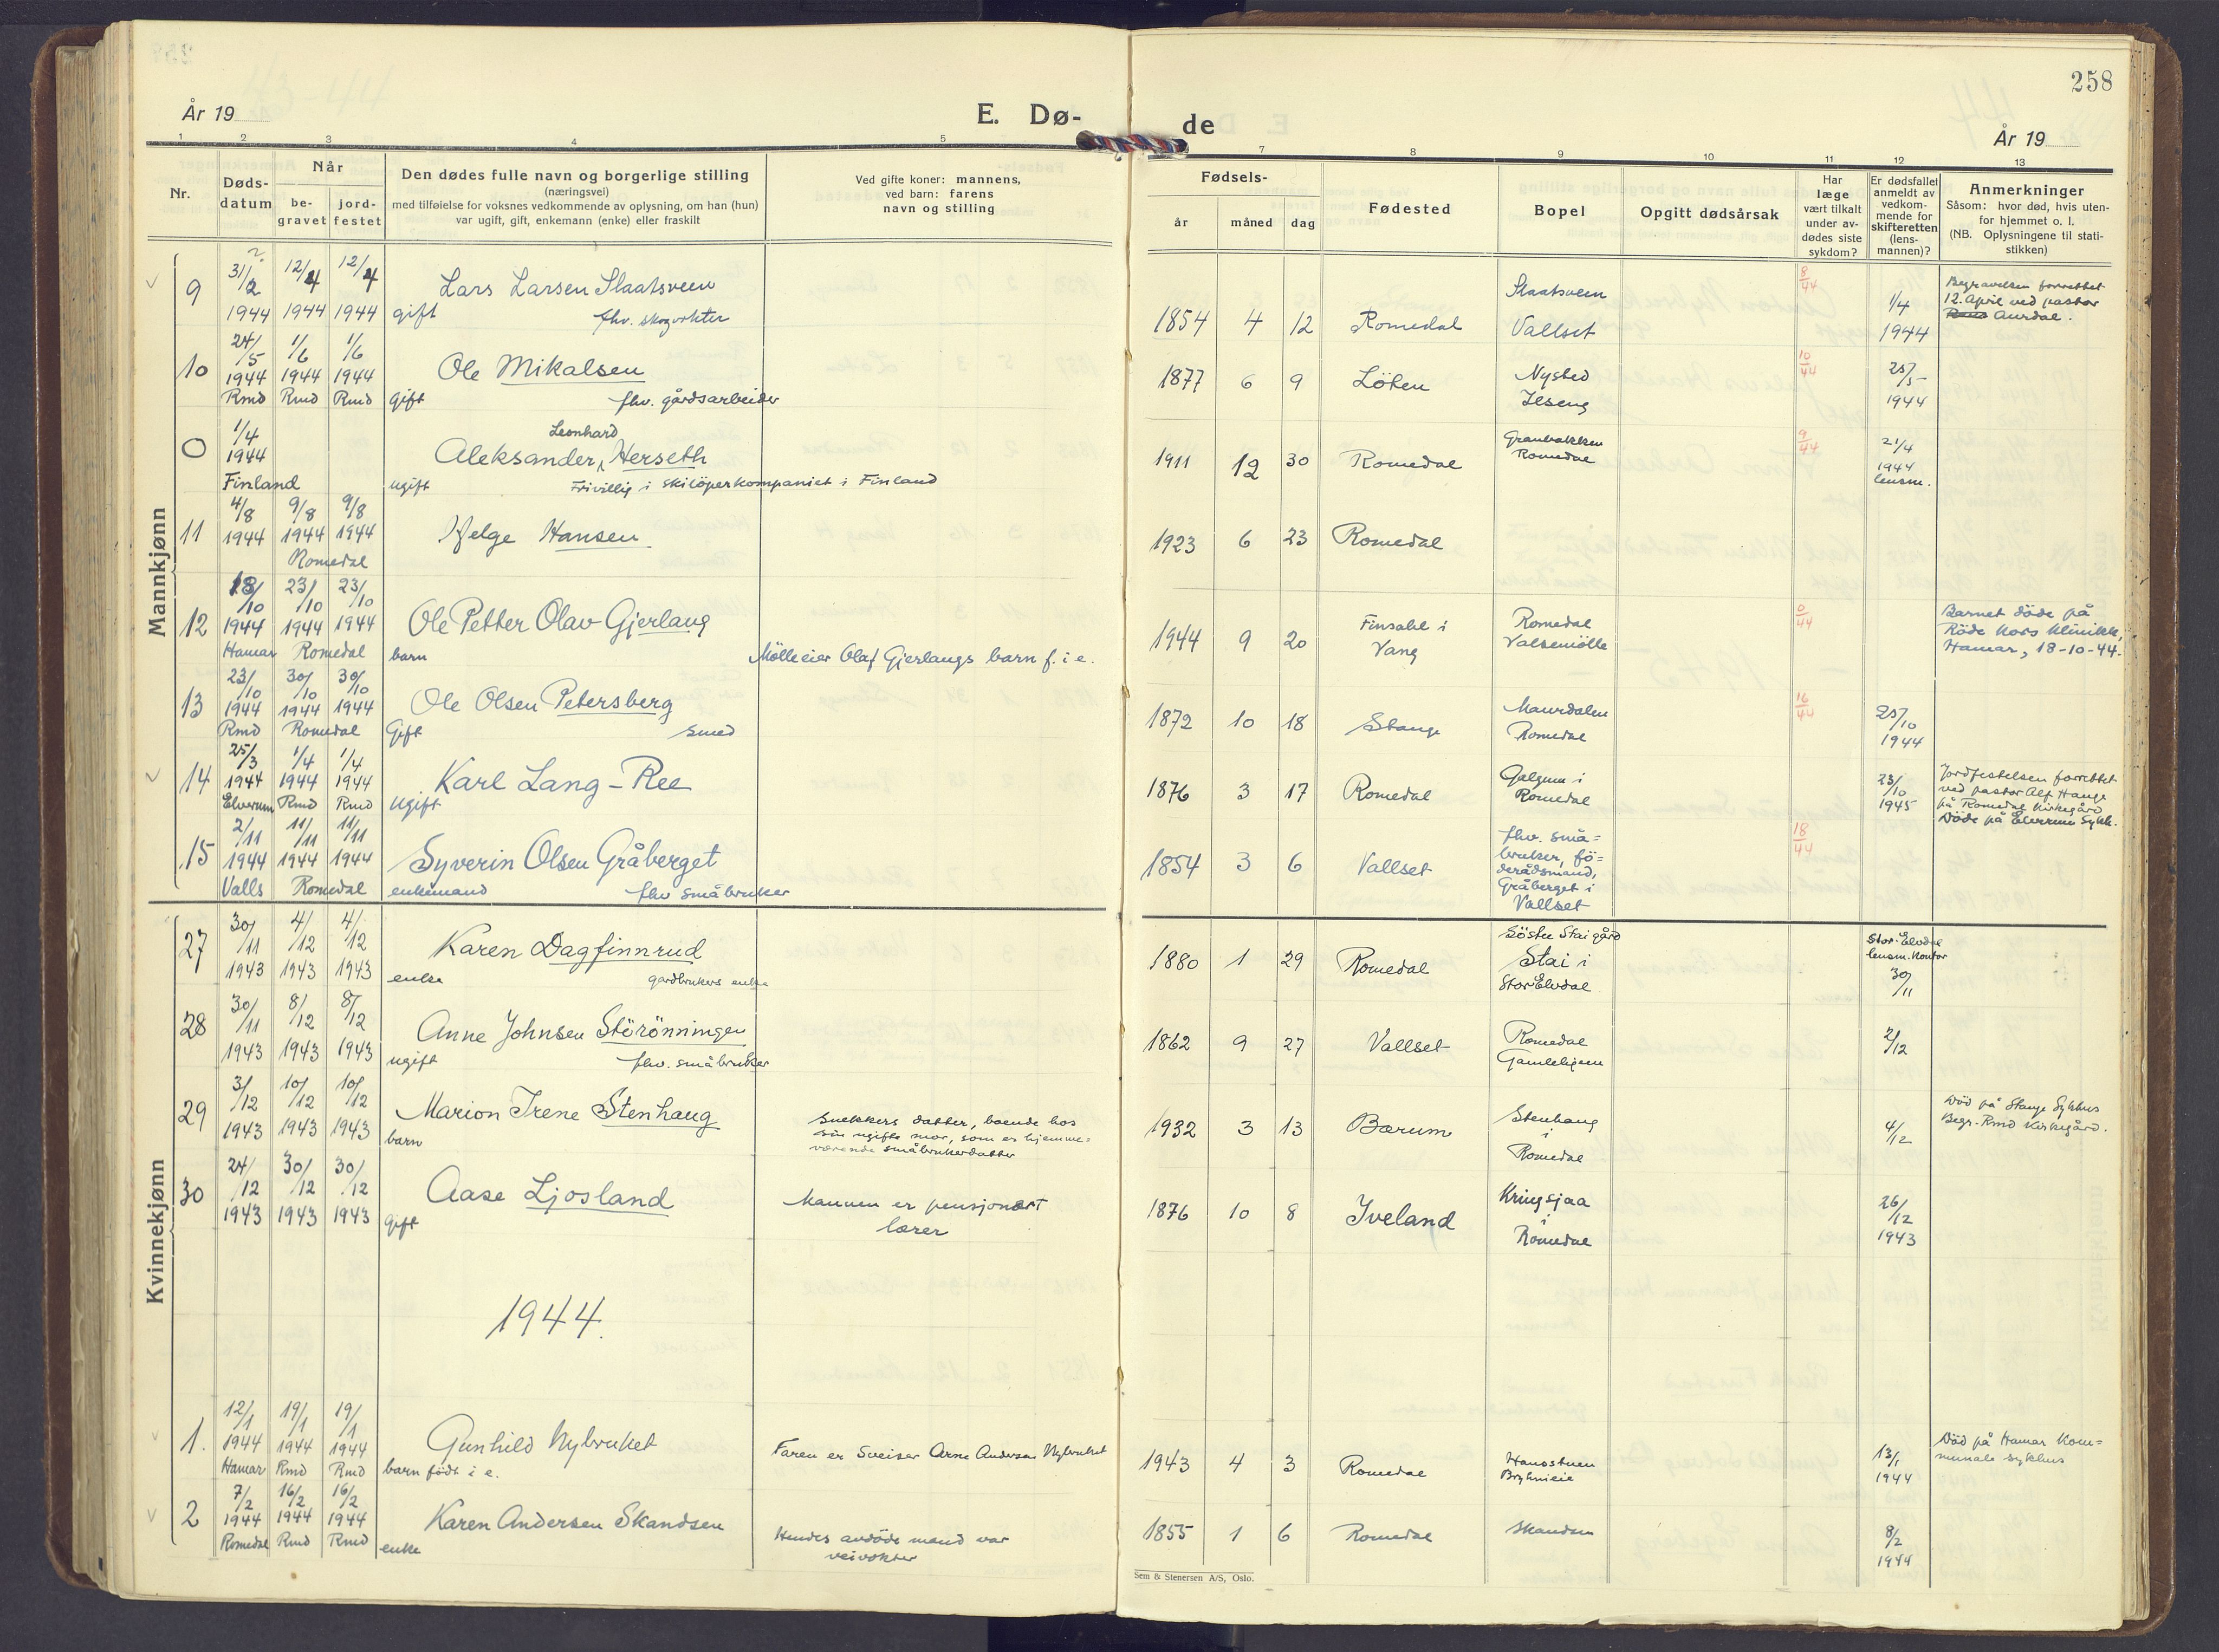 258
År 19
E. Dø-
de
År 19
1 2 3 4 5
7 8 9 10 11 12 13
Nr.
Døds-
datum
Når
be-
gravet
jord-
festet
Den dødes fulle navn og borgerlige stilling
(næringsvei)
med tilføielse for voksnes vedkommende av oplysning, om han (hun)
var ugift, gift, enkemann (enke) eller fraskilt
Ved gifte koner: mannens,
ved barn: farens
navn og stilling
Fødsels-
år måned dag
Fødested
Bopel
Opgitt dødsårsak
Har
læge
vært tilkalt
under av-
dødes siste
sykdom?
Er dødsfallet
anmeldt av
vedkom-
mende for
skifteretten
(lens-
mannen)?
Anmerkninger
Såsom: hvor død, hvis uten-
for hjemmet o. l.
(NB. Oplysningene til stati-
stikken)
Mannkjønn
9 31/2 1944 12/4 1944 12/4 1944
Lars Larsen Slaatsveen
gift fhv. skogvokter
1854 4 12 Romedal
Slaatsveen
Vallset
8/44
1/4
1944
Begravelsen forrettet
12. April ved pastor
Aurdal.
10 24/5 1944 Rmd 1/6 1944 Rmd 1/6 1944 Rmd
Ole Mikalsen
gift fhv. gårdsarbeider
1877 6 9 Löten
Nysted
Ilseng
10/44
25/5
1944
0 1/4 1944 Finland
Leonhard
Aleksander Herseth
ugift Frivillig i skilöperkompaniet i Finland
1911 12 30 Romedal
Granbakken
Romedal
9/44
21/4
1944
lensm.
11 4/8 1944 9/8 1944 9/8 1944
Romedal
Helge Hansen
1923 6 23 Romedal
12 18/10 1944 Hamar 23/10 1944 23/10 1944 Romedal
Ole Petter Olav Gjerlaug
barn Mölleeier Olaf Gjerlaugs barn f. i e.
1944 9 20
Finsahl i
Vang
Romedal
Valsemölle
0/44
Barnet döde på
Röde Kors Klinikk,
Hamar, 18-10-44.
13 23/10 1944 Rmd 30/10 1944 30/10 1944 Romedal
Ole Olsen Petersberg
Gift smed
1872 10 18 Stange
Maurdalen
Romedal
16/44
25/10
1944
14 25/3 1944 Elverum 1/4 1944 Rmd 1/4 1944 Rmd
Karl Lang-Ree
ugift
1876 3 17 Romedal
Galgum i
Romedal
23/10
1945
Jordfestelsen forrettet
ved pastor Alf Hauge
på Romedal Kirkegård
Döde på Elverum Sykh.
15 2/11 1944 Valls 11/11 1944 11/11 1944 Romedal
Syverin Olsen Gråberget
enkemand fhv småbruker
1854 3 6 Vallset
fhv. små=
bruker, fö=
derådsmand,
Gråberget i
Vallset
18/44
Kvinnekjønn
27 30/11 1943 4/12 1943 4/12 1943
Karen Dagfinnrud
enke gardbrukers enke
1880 1 29 Romedal
Söstu Stai gård
Stai i
Stor Elvdal
Stor-Elvdal
lensm. kontor
30/11
28 30/11 1943 8/12 1943 8/12 1943
Anne Johnsen Störönningen
ugift fhv. småbruker
1862 9 27 Vallset
Romedal
Gamlehjem
2/12
29 3/12 1943 10/12 1943 10/12 1943
Marion Irene Stenhaug
barn
Snekkers datter, boende hos
sin ugifte mor, som er hjemme=
værende småbrukerdatter
1932 3 13 Bærum
Stenhaug
i
Romedal
4/12
Död på Stange Sykhus
Begr. Rmd Kirkegård.
30 24/12 1943 30/12 1943 30/12 1943
Aase Ljosland
Gift
Mannen er pensjonert
lærer
1876 10 8 Iveland
Kringsjaa
i
Romedal
26/12
1943
1944.
1. 12/1 1944 Hamar 19/1 1944 Rmd 19/1 1944 Rmd
Gunhild Nybruket
barn födt i e.
Faren er Sveiser Arne Andersen Nybruket
1943 4 3 Romedal
Hanostuen
Brynieie
13/1
1944
Död på Hamar Kom=
munale sykhus
2 7/2 1944 Romedal 16/2 1944 Rmd 16/2 1944 Rmd
Karen Andersen Skandsen
enke
Hendes avdöde mand var
veivokter
1855 1 6 Romedal
Skandsen
8/2
1944
Sem & Stenersen A/S, Oslo.